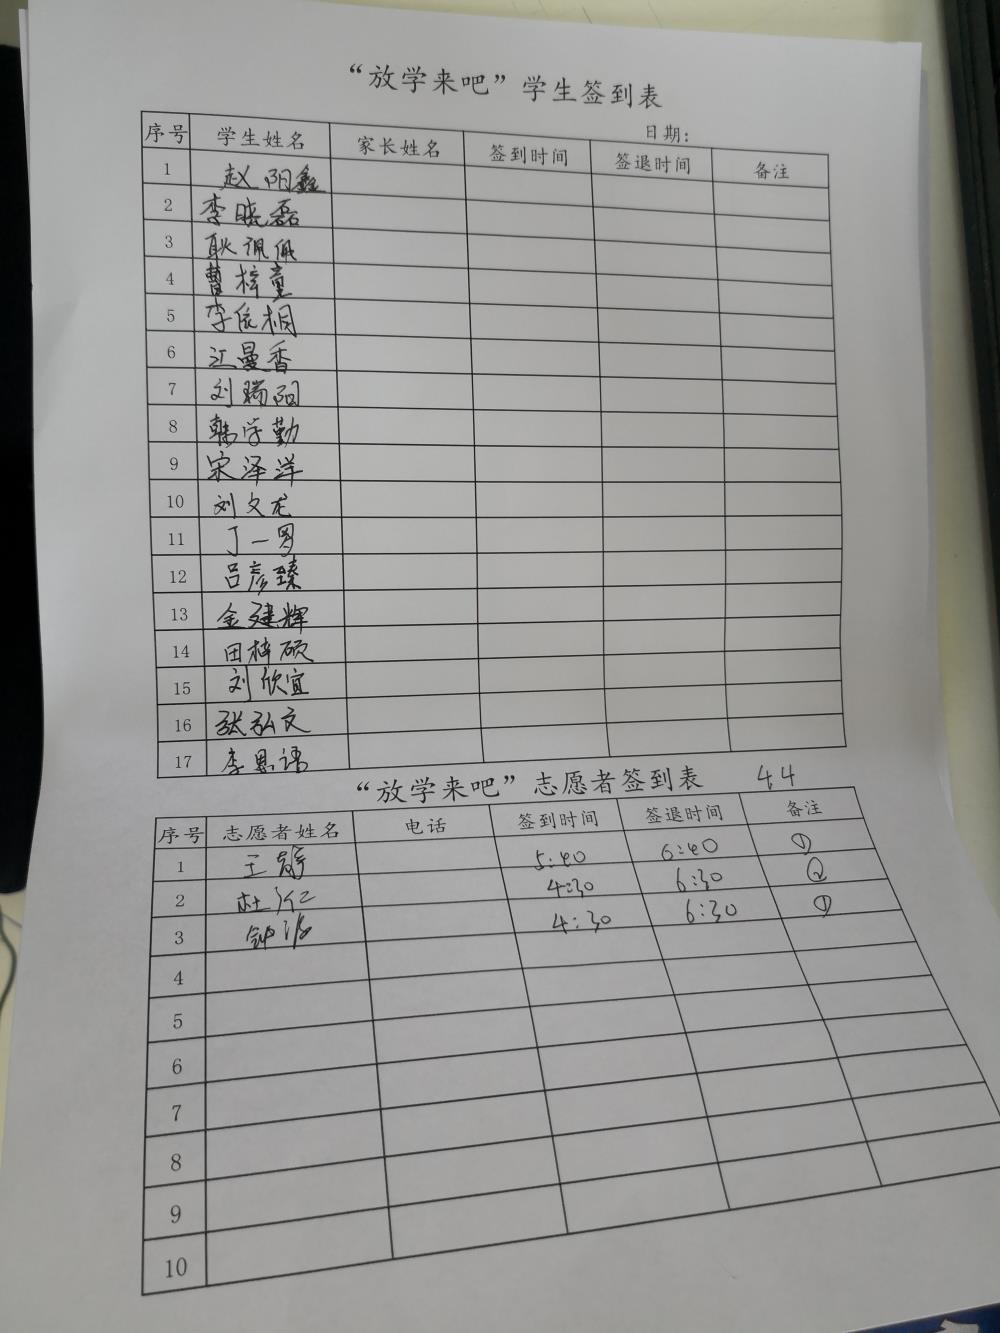 “放学来吧”学生签到表
日期:
序号 学生姓名 家长姓名 签到时间 签退时间 备注
1 赵阳鑫
2 李晓磊
3 耿佩佩
4 曹梓童
5 李依桐
6 江曼香
7 刘瑞阳
8 韩学勤
9 宋泽洋
10 刘文龙
11 丁一男
12 吕彦臻
13 金建辉
14 田梓硕
15 刘欣宜
16 张弘文
17 李思语
“放学来吧”志愿者签到表 44
序号 志愿者姓名 电话 签到时间 签退时间 备注
1 王静 5:40 6:40 ①
2 杜 4:30 6:30 ②
3 钟 4:30 6:30 ①
4
5
6
7
8
9
10